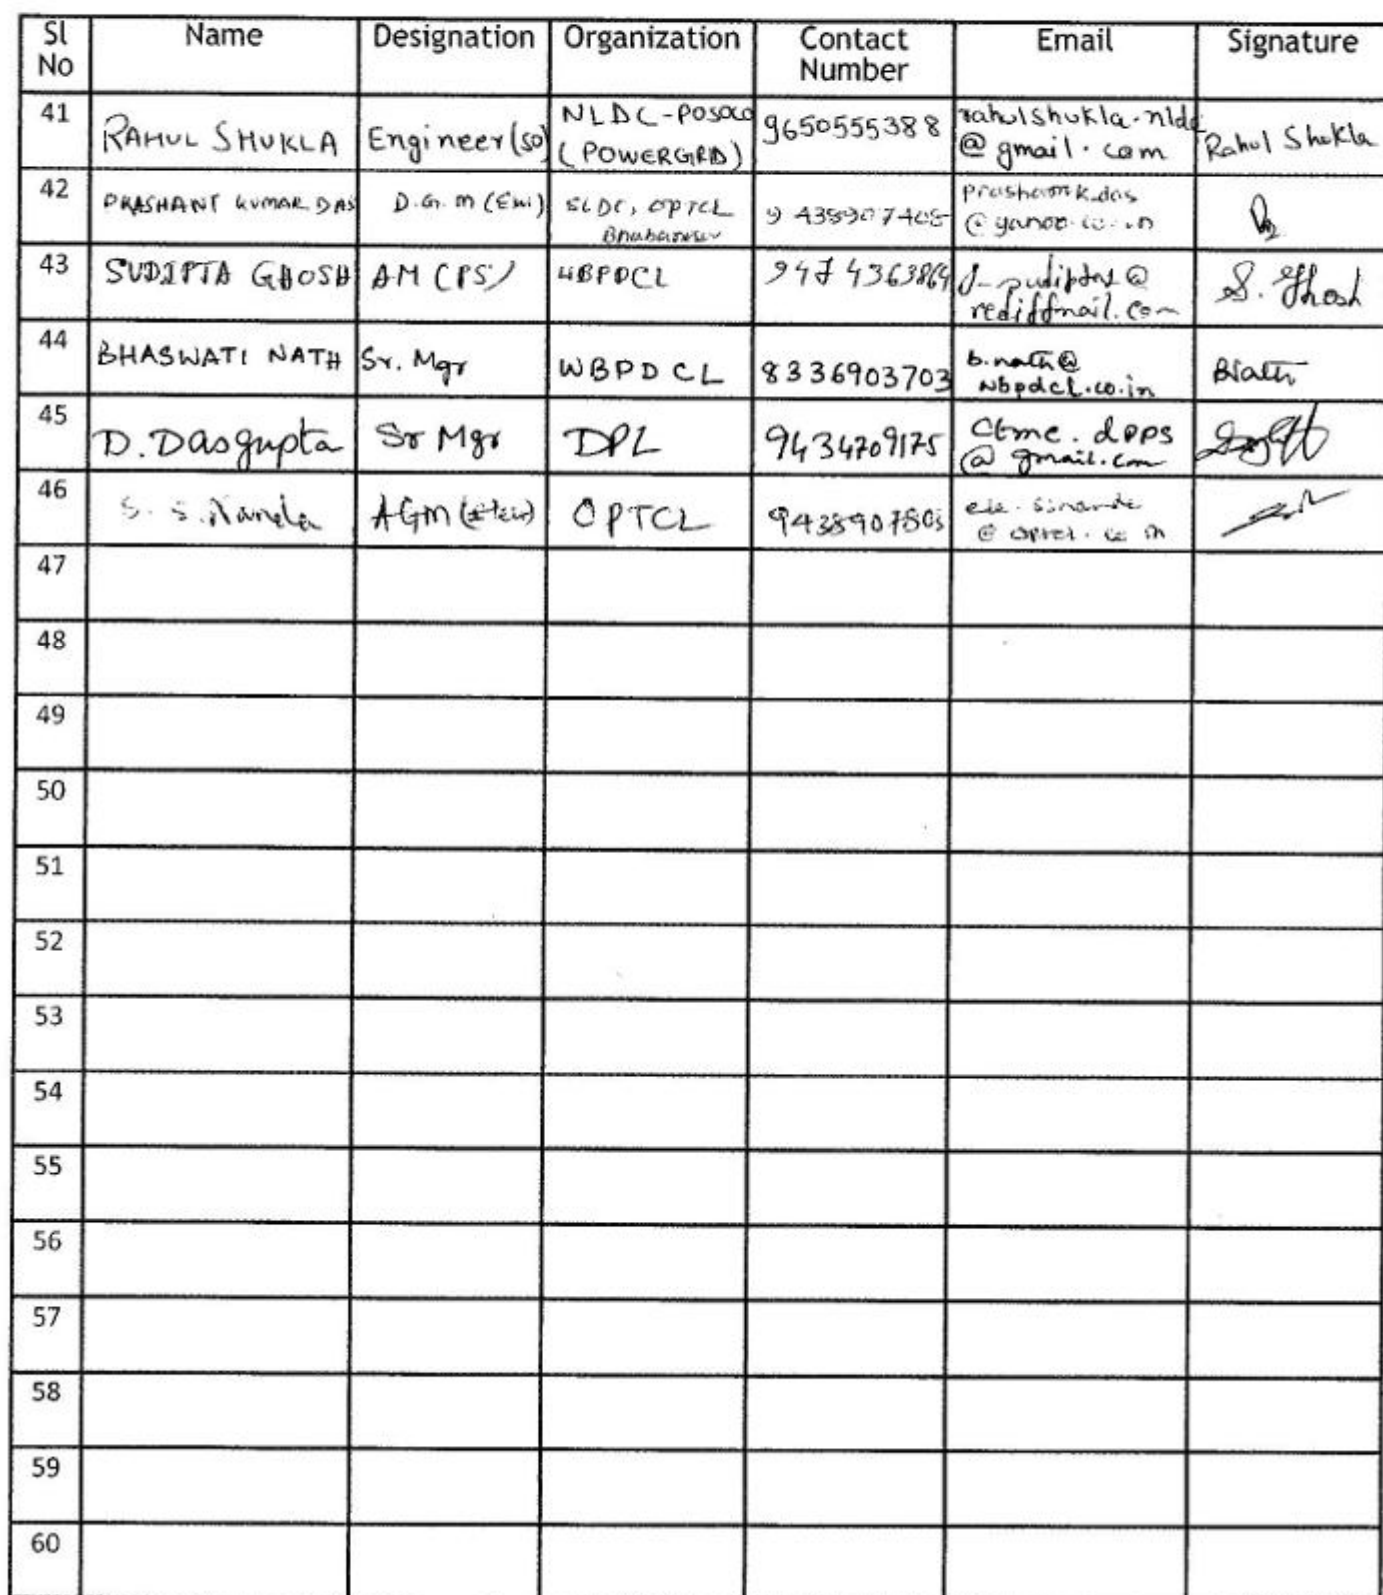 Sl No Name Designation Organization Contact Number Email Signature
41 RAHUL SHUKLA Engineer (SO) NLDC-POSOCO (POWERGRID) 9650555388 rahulshukla.nldc@gmail.com Rahul Shukla
42 PRASHANT KUMAR DAS D.G.M SLDC, OPTCL prashantk.das
43 SUDIPTA GHOSH AM (PS) WBPDCL rediffmail.com S. Ghosh
44 BHASWATI NATH Sr. Mgr WBPDCL 8336903703 b.nath@wbpdcl.co.in BNath
45 D. Dasgupta Sr Mgr DPL 9434709175 ctmc.dpps@gmail.com
46 S. S. Nanda AGM OPTCL
47
48
49
50
51
52
53
54
55
56
57
58
59
60